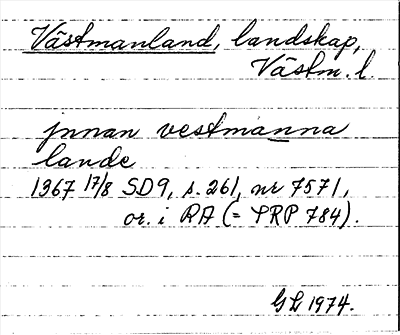 Västmanland, landskap,
Västm. l.
jnnan vestmanna
lande
1367 17/8 SD9, s. 261, nr 7571,
or. i RA (= SRP 784).
GL 1974.